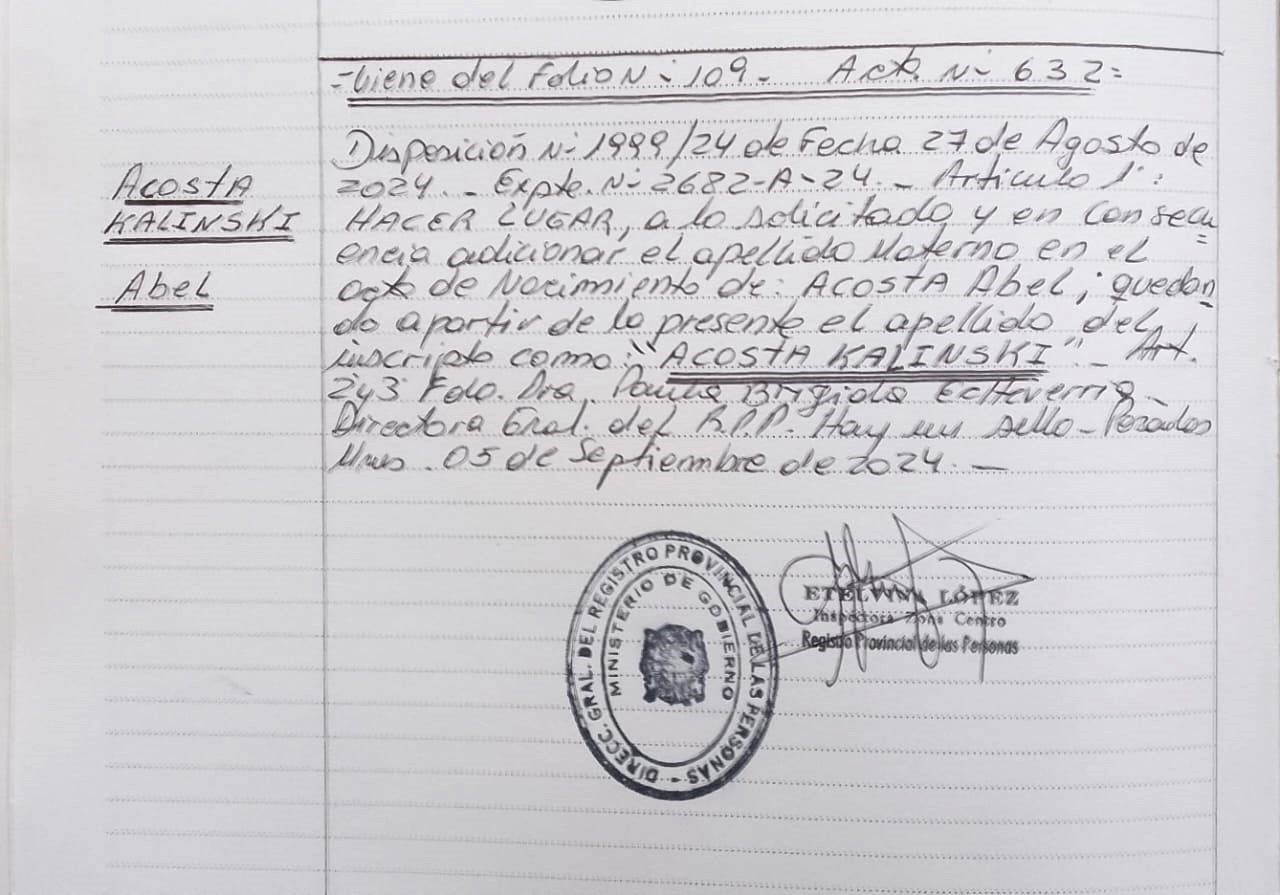 -Viene del Folio N- 109- Acta N- 632=
Acosta
KALINSKI
Abel
Disposición N- 1999/24 de Fecha 27 de Agosto de
2024.- Expte. N- 2682-A-24.- Articulo 1°:
HACER LUGAR, a lo solicitado y en Consecu
=
encia adicionar el apellido Materno en el
acta de Nacimiento de: ACOSTA Abel, quedan_
do a partir de la presente el apellido del
inscripto como: "ACOSTA KALINSKI"- Art.
243 Fdo. Dra. Paula Brigida Echeverria-
Directora Gral. del R.P.P- Hay un sello- Posadas
Mnes. 05 de Septiembre de 2024.—
DIRECC. GRAL. DEL REGISTRO PROVINCIAL DE LAS PERSONAS -
MINISTERIO DE GOBIERNO
ETELVINA LÓPEZ
Inspectora Zona Centro
Registro Provincial de las Personas